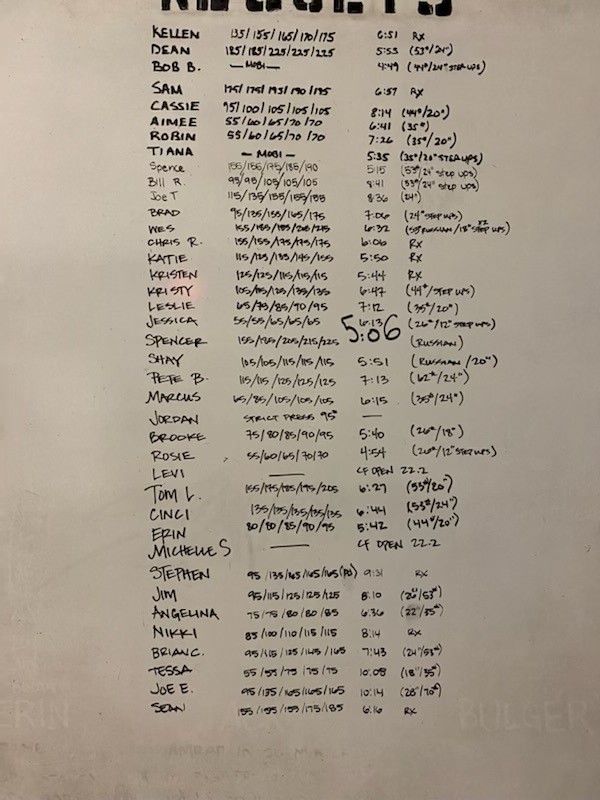 RESULTS
KELLEN 135/155/165/170/175 6:51 RX
DEAN 185/185/225/225/225 5:55 (53#/24")
BOB B. — MOBI — 4:49 (44#/24" STEP UPS)
SAM 175/175/ 190/195 6:57 RX
CASSIE 95/100/105/105/105 8:14 (44#/20")
AIMEE 55/60/65/70/70 6:41 (35#)
ROBIN 55/60/65/70/70 7:26 (35#/20")
TIANA — MOBI — 5:35 (35#/20" STEP UPS)
Spence 155/ /175/185/190 5:15 (53#/24" step ups)
Bill R. 95/95/105/105/105 8:41 (53#/24" step ups)
Joe T 115/135/155/155/155 8:36 (24")
BRAD 95/135/155/165/175 7:06 (24" STEP UPS)
WES 155/185/ /205/215 6:32 (53# RUSSIAN/18" STEP UPS) x2
CHRIS R. 155/155/175/175/175 6:06 RX
KATIE 115/125/135/145/155 5:50 RX
KRISTEN 125/125/115/115/115 5:44 RX
KRISTY 105/115/125/135/135 6:47 (44#/STEP UPS)
LESLIE 65/75/85/90/95 7:12 (35#/20")
JESSICA 55/55/65/65/65 6:13 (26#/12" STEP UPS)
SPENCER 155/185/205/215/225 5:06 (RUSSIAN)
SHAY 105/105/115/115/115 5:51 (RUSSIAN/20")
PETE B. 115/115/125/125/125 7:13 (62#/24")
MARCUS 65/85/105/105/105 6:15 (35#/24")
JORDAN STRICT PRESS 95# —
BROOKE 75/80/85/90/95 5:40 (26#/18")
ROSIE 55/60/65/70/70 4:54 (26#/12" STEP UPS)
LEVI — CF OPEN 22.2
TOM L. 155/175/185/195/205 6:27 (53#/20")
CINCI 135/135/135/135/135 6:44 (53#/24")
ERIN 80/80/85/90/95 5:42 (44#/20")
MICHELLE S — CF OPEN 22.2
STEPHEN 95/135/165/165/165 (PS) 9:31 RX
JIM 95/115/125/125/125 8:10 (20"/53#)
ANGELINA 75/75/80/80/85 6:36 (22"/35#)
NIKKI 85/100/110/115/115 8:14 RX
BRIAN C. 95/115/125/145/165 7:43 (24"/53#)
TESSA 55/55/75/75/75 10:08 (18"/35#)
JOE E. 95/135/165/165/165 10:14 (28"/70#)
SEAN 155/155/155/175/185 6:16 RX
BULGER